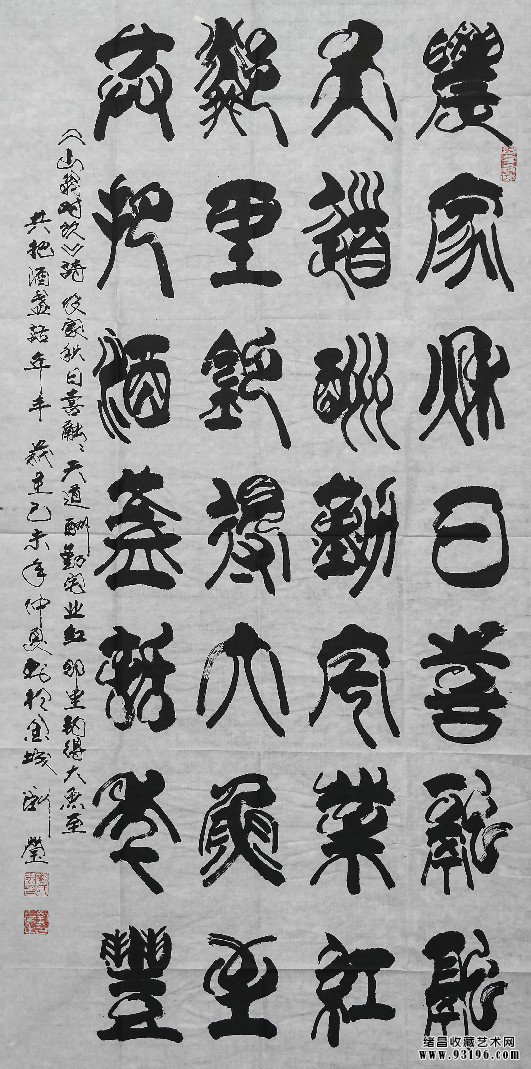 農家秋日喜融融
天道酬勤業紅
鄰里釣得大魚至
共把酒盞話年豐
山翁对饮诗农家秋日喜融融天道酬勤业红邻里钓得大鱼至
共把酒盏话年丰 未年仲夏于金城 莹
绪昌收藏艺术网
www.93196.com